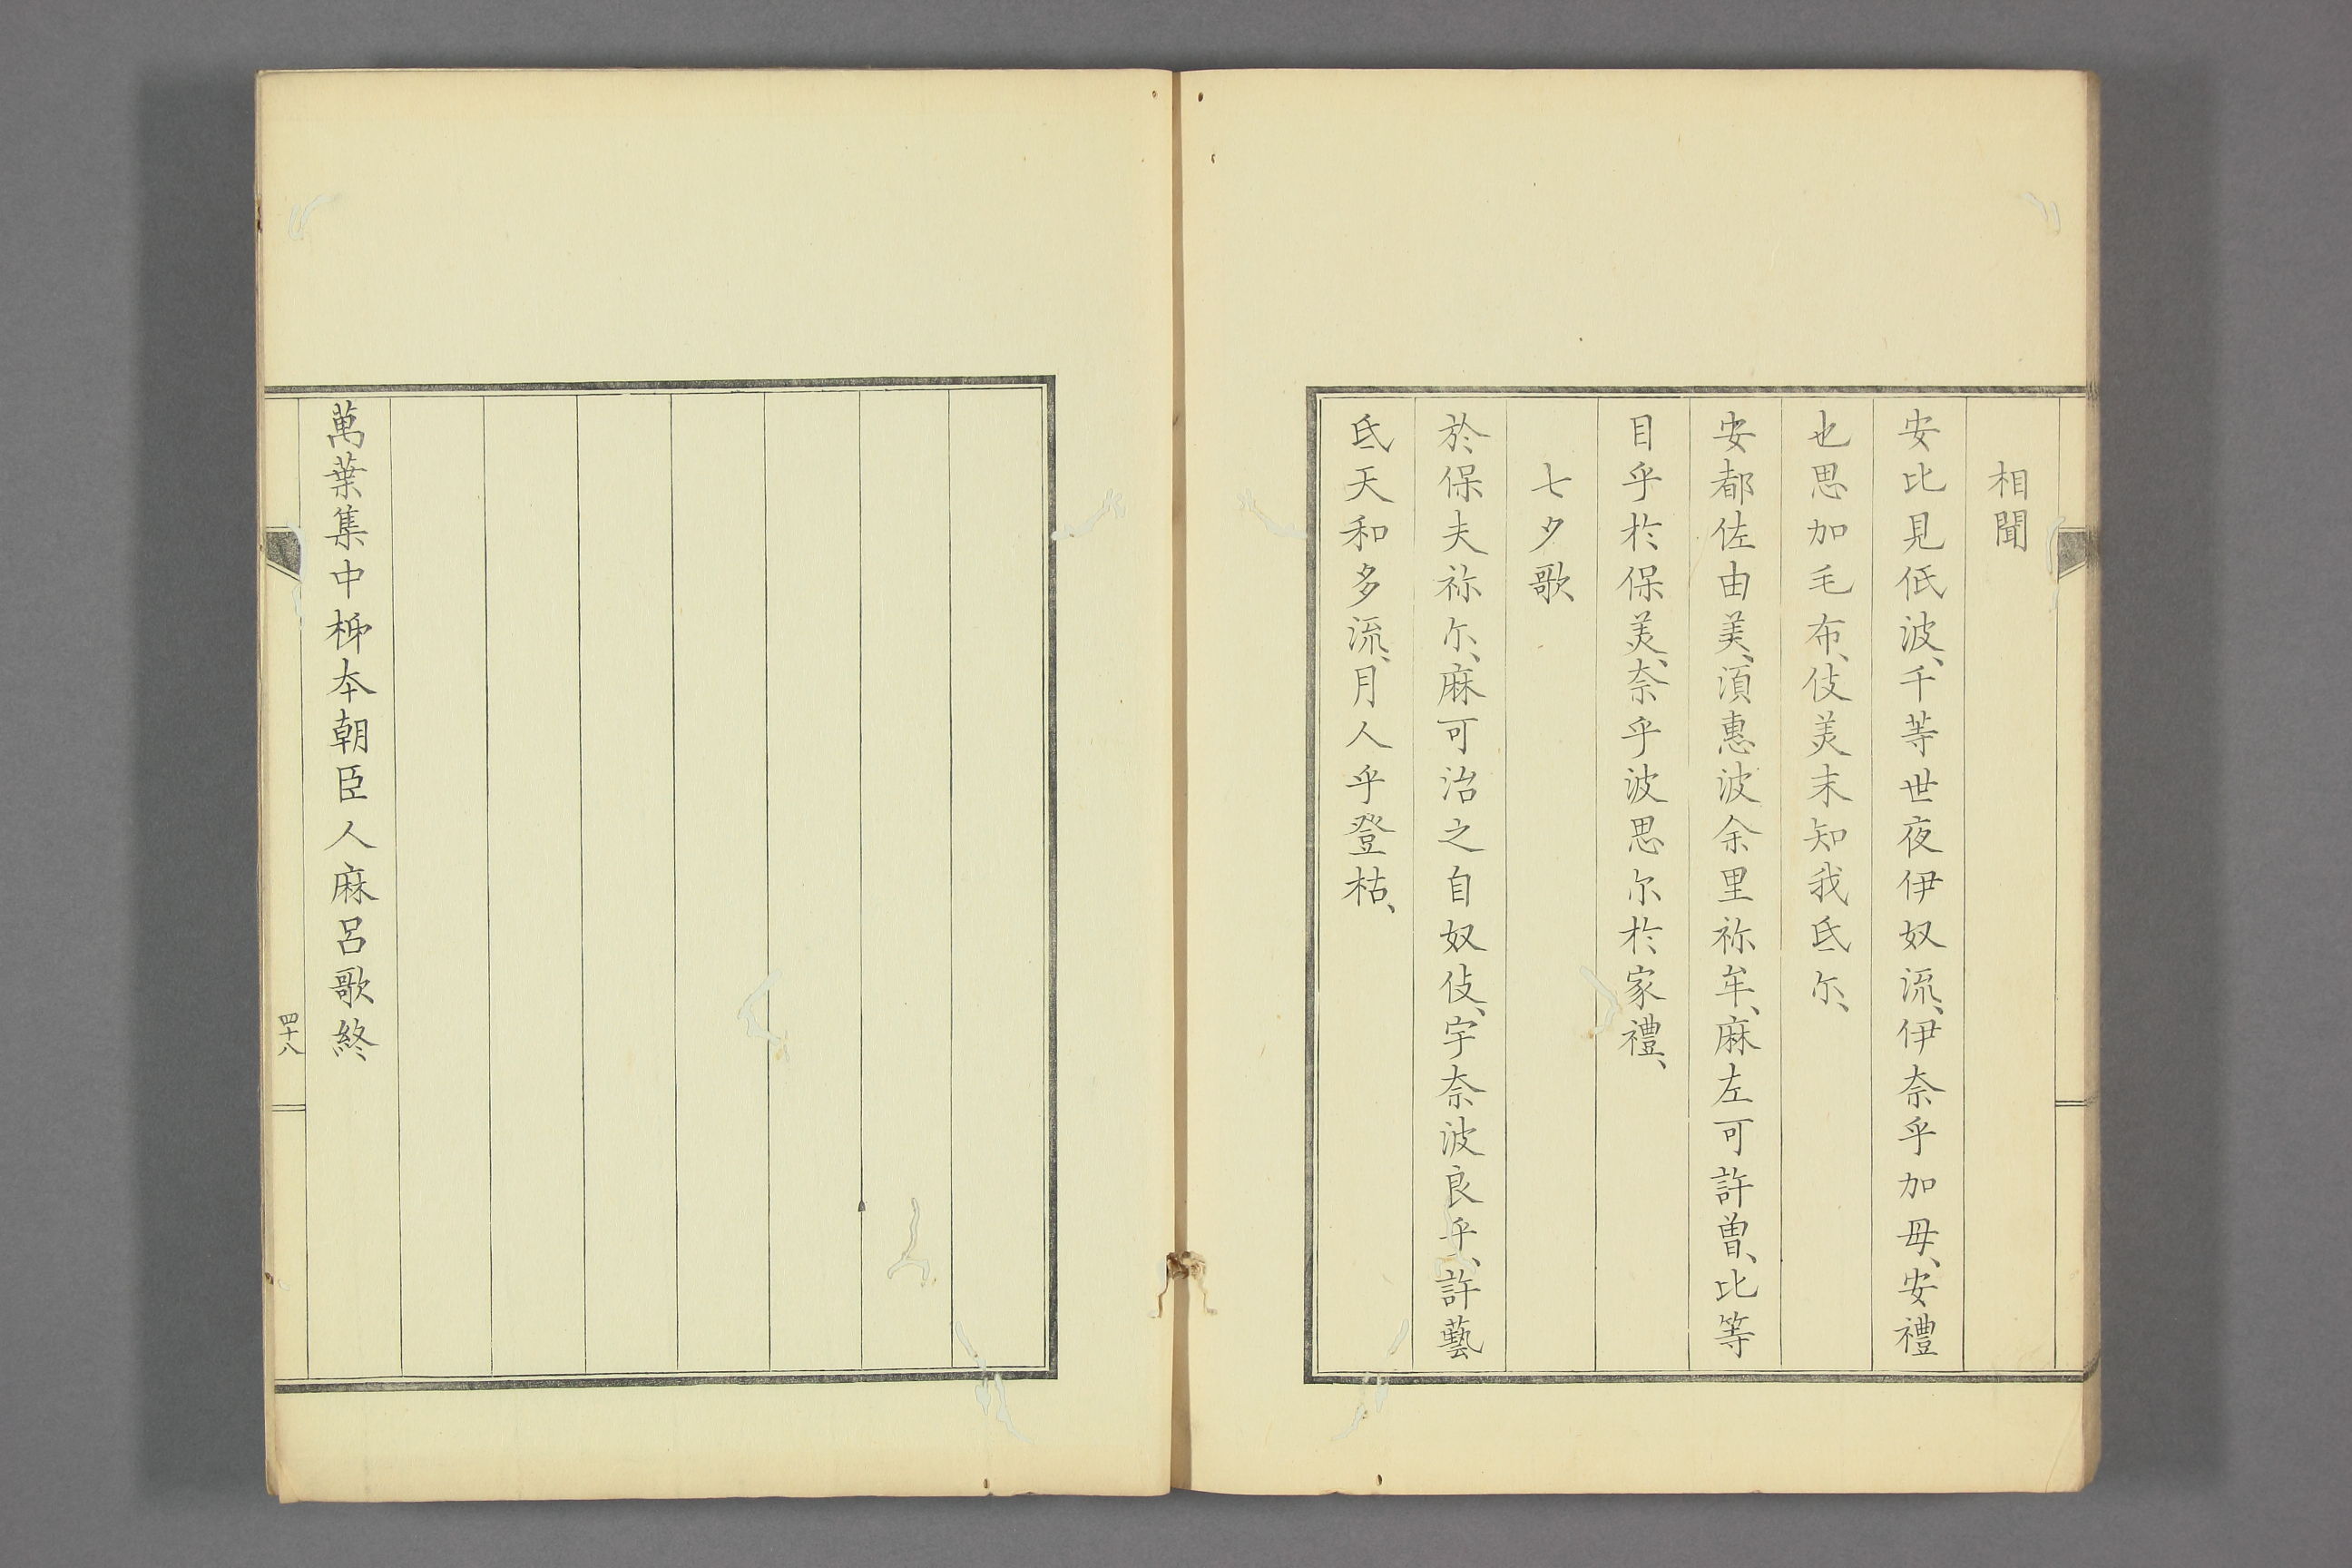 相聞
安比見伭波、千等世夜伊奴流、伊奈乎加毋、安禮
也思加毛布、伎美末知我氐尓、
安都佐由美、湏惠波余里祢牟、麻左可許曽、比等
目乎於保美、奈乎波思尓於家禮、
七夕歌
於保夫祢尓、麻可治之自奴伎、宇奈波良乎、許藝
氐天和多流、月人乎登枯、
萬葉集中柹本朝臣人麻呂歌終
四十八